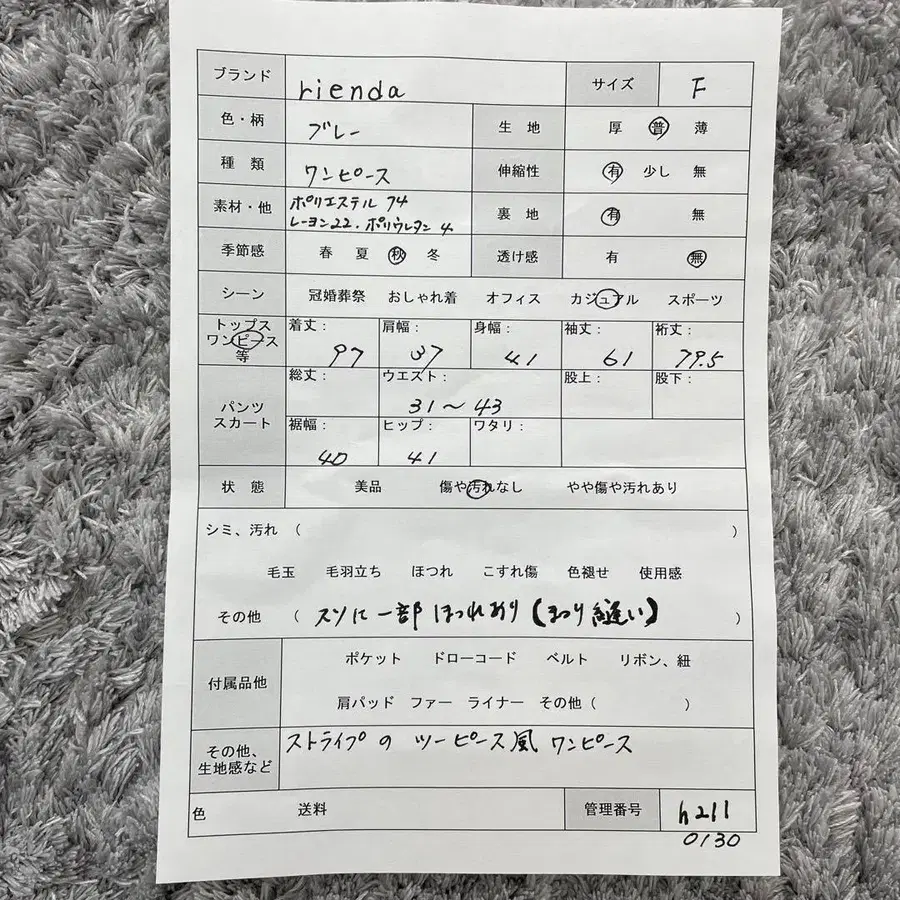 ブランド rienda サイズ F
色・柄 グレー 生 地 厚 普 薄
種 類 ワンピース 伸縮性 有 少し 無
素材・他 ポリエステル 74
レーヨン22. ポリウレタン 4
裏 地 有 無
季節感 春 夏 秋 冬 透け感 有 無
シーン 冠婚葬祭 おしゃれ着 オフィス カジュアル スポーツ
トップス
ワンピース
等
着丈: 97 肩幅: 37 身幅: 41 袖丈: 61 裄丈: 79.5
パンツ
スカート
総丈: ウエスト: 31〜43 股上: 股下:
裾幅: 40 ヒップ: 41 ワタリ:
状 態 美品 傷や汚れなし やや傷や汚れあり
シミ、汚れ ( )
毛玉 毛羽立ち ほつれ こすれ傷 色褪せ 使用感
その他 ( スソに一部ほつれあり(まつり縫い) )
付属品他 ポケット ドローコード ベルト リボン、紐
肩パッド ファー ライナー その他 ( )
その他、
生地感など
ストライプの ツーピース風 ワンピース
色 送料 管理番号 h211
0130